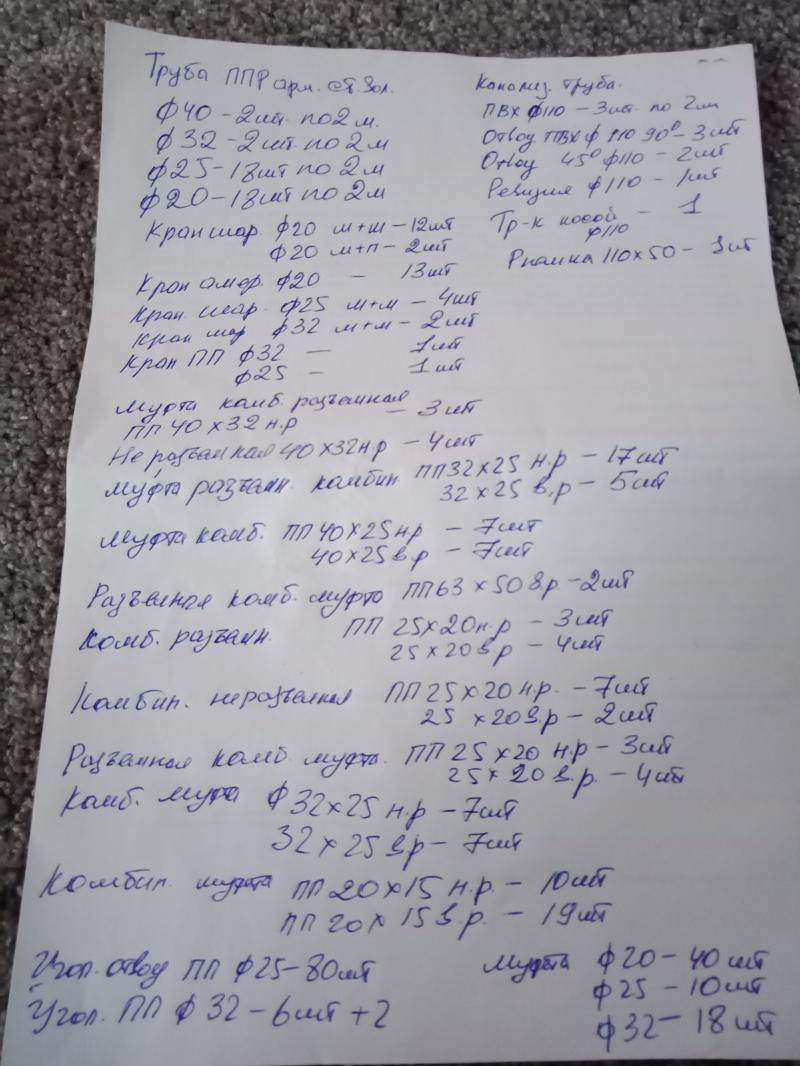 Труба ППР арм. ст. вол.
ф40 - 2шт. по 2 м.
ф32 - 2шт по 2 м
ф25 - 18шт по 2 м
ф20 - 18шт по 2 м
Кран шар. ф20 м+ш - 12шт
ф20 м+п - 2шт
Кран ф20 - 13шт
Кран шар. ф25 м+м - 4шт
Кран шар ф32 м+м - 2шт
Кран ПП ф32 - 1шт
ф25 - 1шт
Муфта комб. разъемная
ПП 40х32 н.р - 3шт
Не разъемная 40х32 н.р - 4шт
Муфта разъемн. комбин ПП 32х25 н.р - 17шт
32х25 в.р - 5шт
Муфта комб. ПП 40х25 н.р - 7шт
40х25 в.р - 7шт
Разъемная комб. муфта ПП 63х50 в.р. - 2шт
Комб. разъемн. ПП 25х20 н.р - 3шт
25х20 в.р - 4шт
Комбин. неразъемная ПП 25х20 н.р. - 7шт
25х20 в.р - 2шт
Разъемная комб. муфта. ПП 25х20 н.р - 3шт
25х20 в.р. - 4шт
Комб. муфта ф32х25 н.р - 7шт
32х25 в.р - 7шт
Комбин. муфта ПП 20х15 н.р. - 10шт
ПП 20х15 в.р. - 19шт
Угол. отвод ПП ф25 - 80шт
Угол. ПП ф32 - 6шт + 2
Канализ. труба.
ПВХ ф110 - 3шт. по 2м
Отвод ПВХ ф110 90° - 3шт
Отвод 45° ф110 - 2шт
Ревизия ф110 - 1шт
Тр-к косой - 1
ф110
110х50 - 1шт
Муфта ф20 - 40шт
ф25 - 10шт
ф32 - 18шт